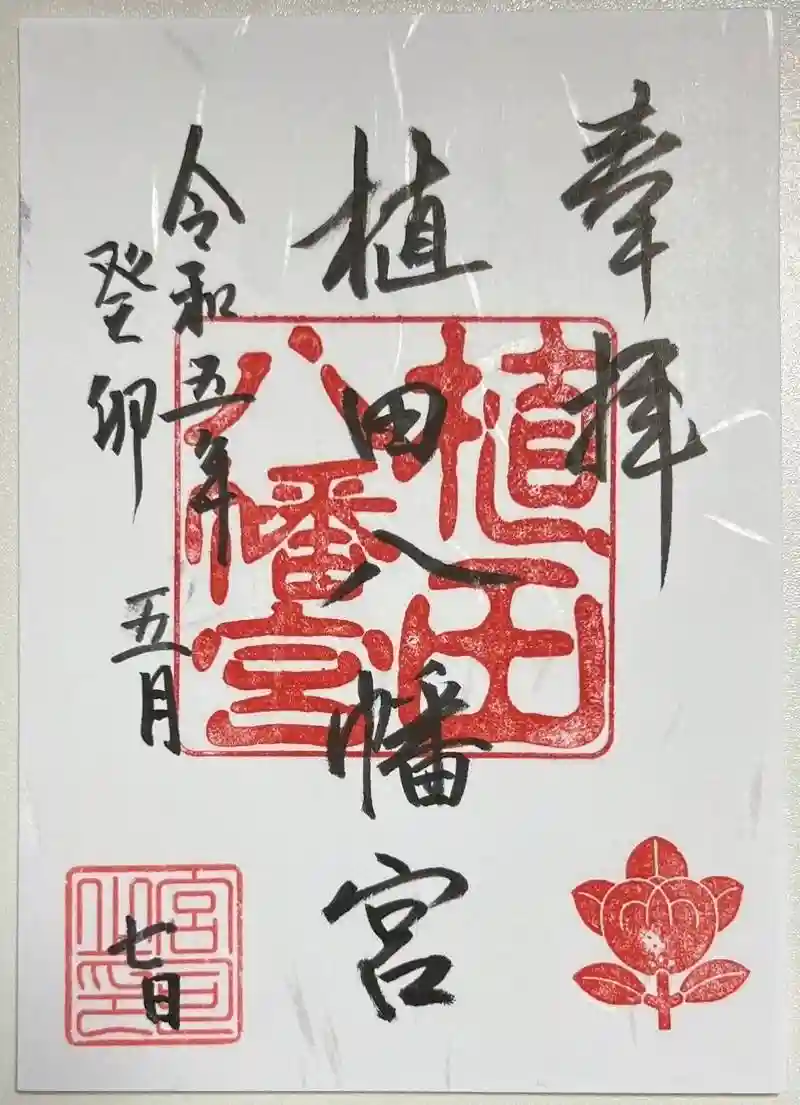 奉拝
植田八幡宮
令和五年
癸卯
五月
七日
植田
八幡宮
宮司之印